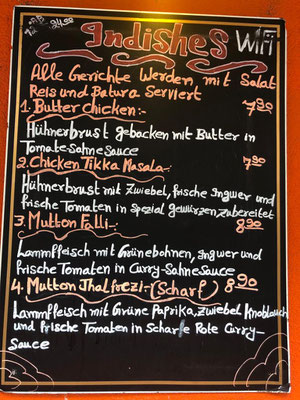 Indishes WiFi
Alle Gerichte Werden mit Salat
Reis und Batura Serviert
1. Butter chicken:- 7,90
Hühnerbrust gebacken mit Butter in
Tomate-Sahne Sauce
2. Chicken Tikka Masala-: 7,90
Hühnerbrust mit Zwiebel, frische Ingwer und
frische Tomaten in Spezial gewürzen, zubereitet
3. Mutton Falli-: 8,90
Lammfleisch mit Grünebohnen, Ingwer und
frische Tomaten in Curry-Sahne Sauce
4. Mutton Jhalfrezi-(Scharf) 8,90
Lammfleisch mit Grüne Paprika, Zwiebel Knoblauch
und frische Tomaten in Scharfe Rote Curry-
Sauce